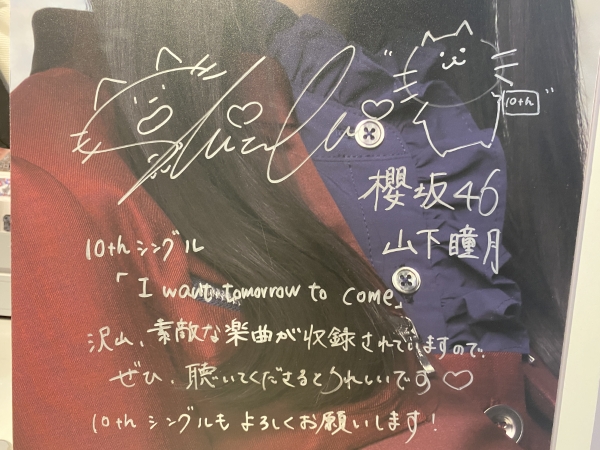 Shizuku
10th
櫻坂46
山下瞳月
10thシングル
「I want tomorrow to come」
沢山、素敵な楽曲が収録されていますので、
ぜひ、聴いてくださるとうれしいです♡
10thシングルもよろしくお願いします!